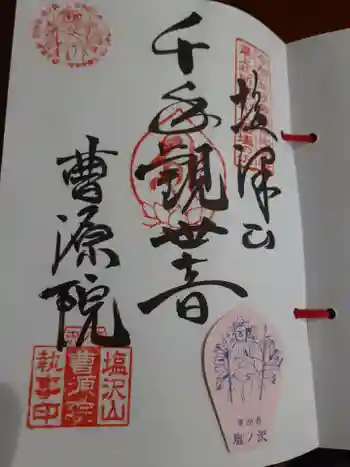 塩澤山
千手観世音
曹源院
塩沢山
曹源院
執事印
塩ノ沢